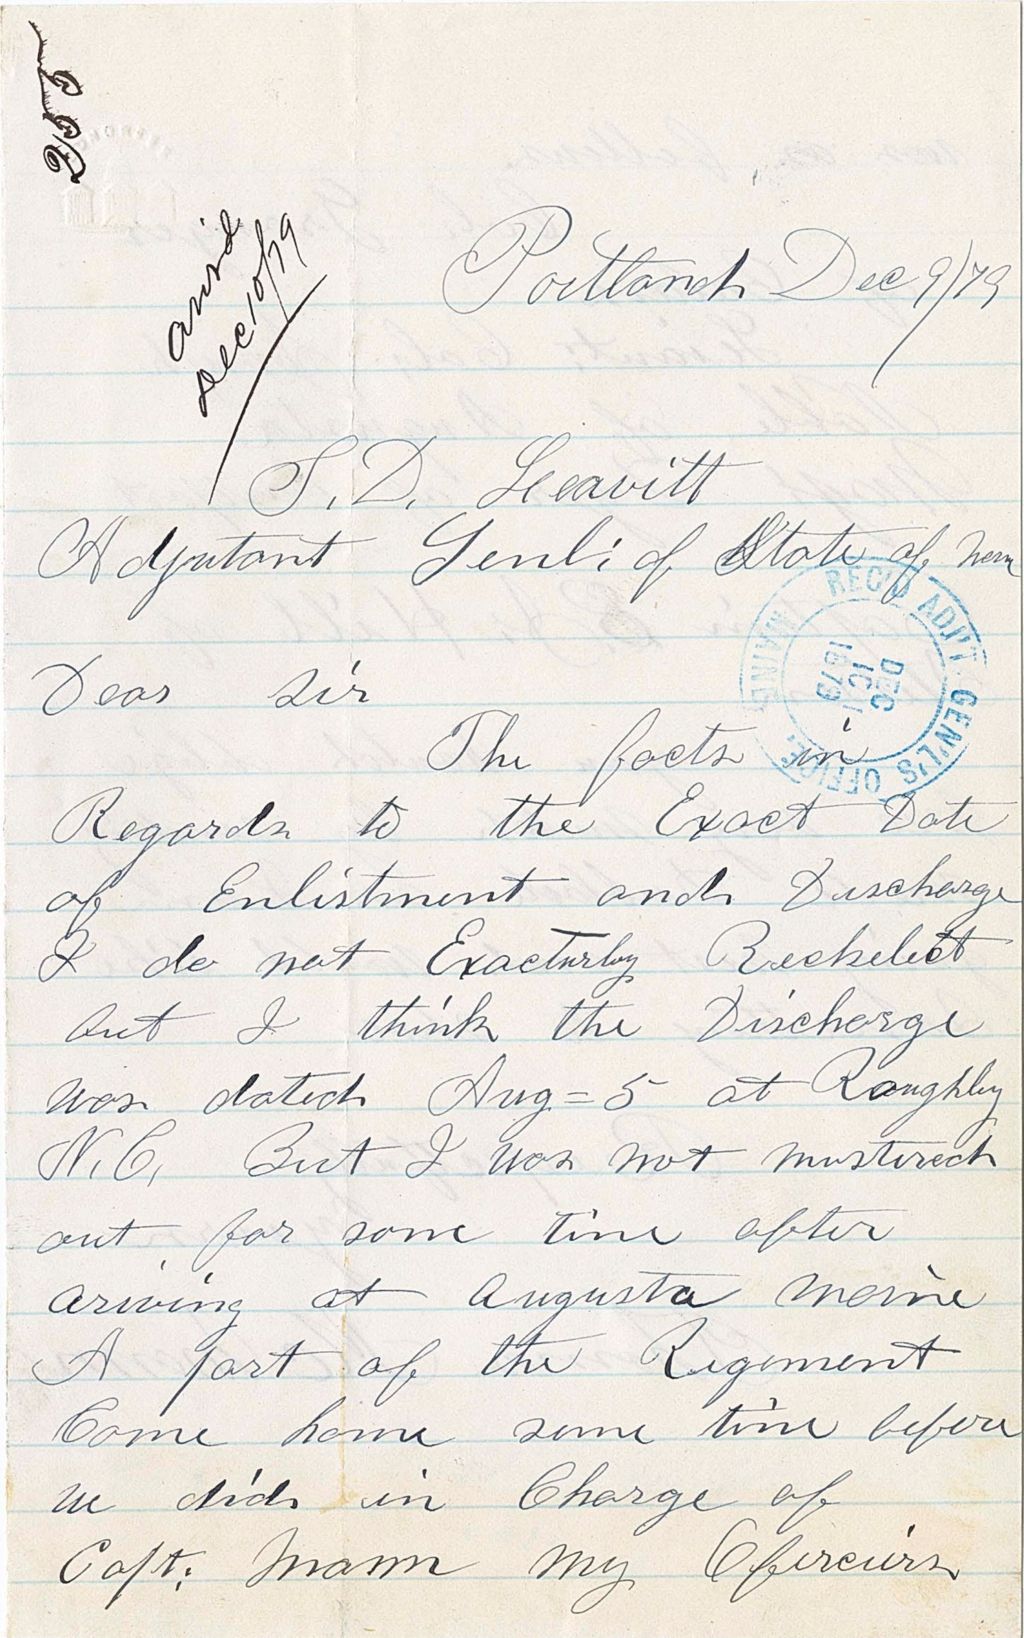 255
ans'd
Dec 10/79
Portland Dec 9/79
S. D. Leavitt
Adjutant Genl; of State of
REC'D ADJ'T GEN'L'S OFFICE, MAINE
DEC
10
1879
Dear Sir
The facts in
Regards to the Exact Date
of Enlistment and Discharge
I do not Exacturley Reckelect
but I think the Discharge
was dated Aug = 5 at Raughley
N.C, But I was not mustered
out for some time after
ariving at Augusta Maine
A part of the Regement
Come home some time before
we did in Charge of
Capt; Mann My